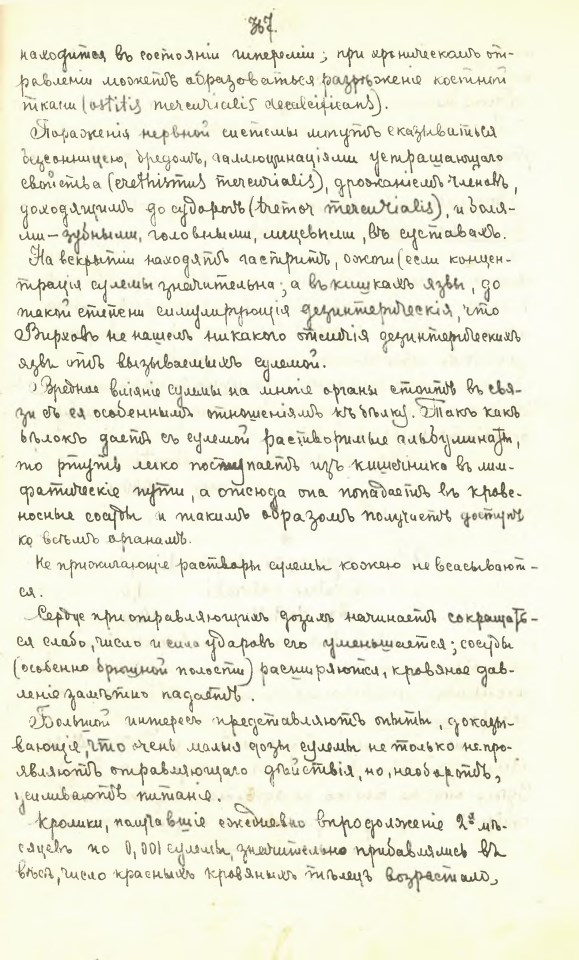 367.
находится въ состояніи гипереміи; при хроническомъ от-
равленіи можетъ образоваться разрѣженіе костной
ткани (ostitis mercurialis decalcificans).
Пораженія нервной системы могутъ сказываться
безсонницею, бредомъ, галлюцинаціями устрашающаго
свойства (erethismus mercurialis), дрожаніемъ членовъ,
доходящимъ до судорогъ (tremor mercurialis), и боля-
ми — зубными, головными, лицевыми, въ суставахъ.
На вскрытіи находятъ гастритъ, ожоги (если концен-
трація сулемы значительна; а въ кишкахъ язвы, до
такой степени симулирующія дезинтерическія, что
Вирховъ не нашелъ никакого отличія дезинтерическихъ
язвъ отъ вызываемыхъ сулемой.
Вредное вліяніе сулемы на многіе органы стоитъ въ свя-
зи съ ея особеннымъ отношеніямъ къ бѣлку. Такъ какъ
бѣлокъ даетъ съ сулемой растворимые альбуминаты,
то ртуть легко поступаетъ изъ кишечника въ лим-
фатическіе пути, а отсюда она попадаетъ въ крове-
носные сосуды и такимъ образомъ получаетъ доступъ
ко всѣмъ органамъ.
Не прижигающіе растворы сулемы кожею не всасывают-
ся.
Сердце при отравляющихъ дозахъ начинаетъ сокращать-
ся слабо, число и сила ударовъ его уменьшается; сосуды
(особенно брюшной полости) расширяются, кровяное дав-
леніе замѣтно падаетъ.
Большой интересъ представляютъ опыты, доказы-
вающіе, что очень малыя дозы сулемы не только не про-
являютъ отравляющаго дѣйствія, но, наоборотъ,
усиливаютъ питаніе.
Кролики, получавшіе ежедневно впродолженіе 2хъ мѣ-
сяцевъ по 0,001 сулемы, значительно прибавлялись въ
вѣсѣ, число красныхъ кровяныхъ тѣлецъ возрастало,